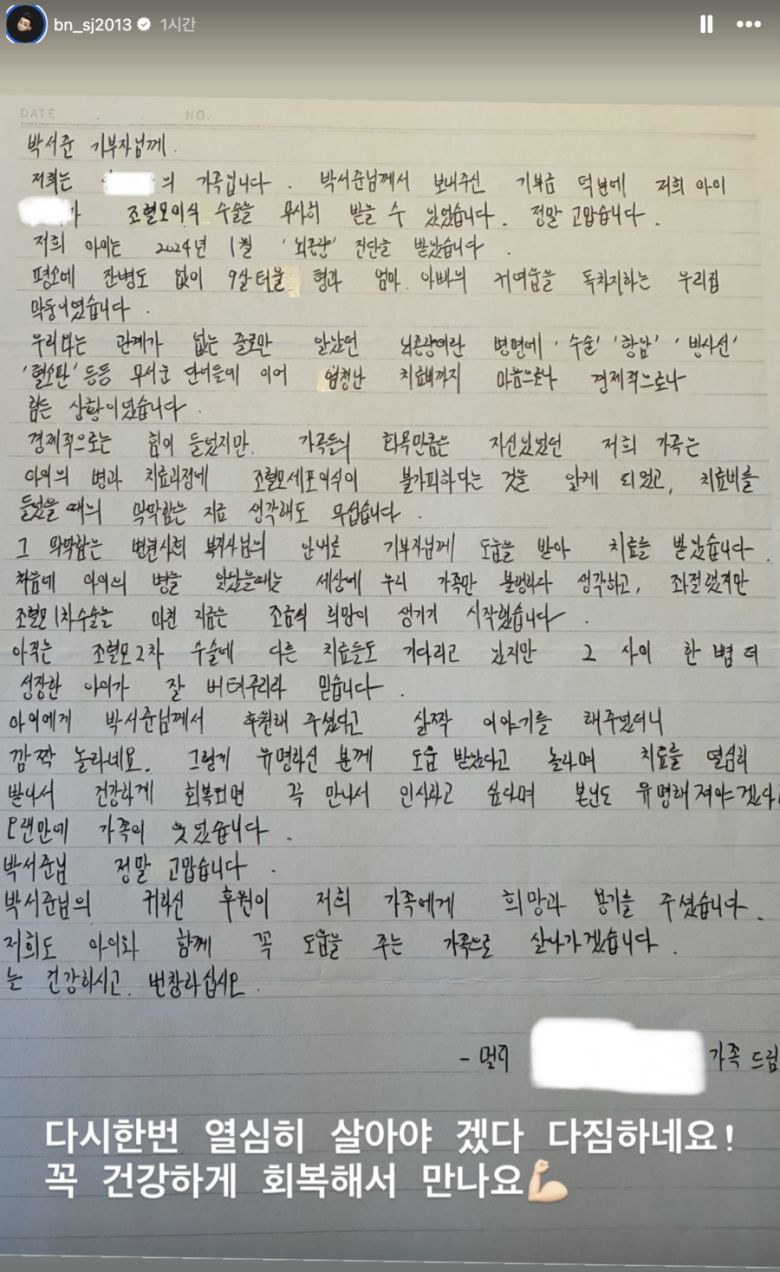 bn_sj2013 1시간
DATE . . NO.
박서준 기부자님께.
저희는 의 가족입니다. 박서준님께서 보내주신 기부금 덕분에 저희 아이
가 조혈모이식 수술을 무사히 받을 수 있었습니다. 정말 고맙습니다.
저희 아이는 2024년 1월 '뇌종양' 진단을 받았습니다.
평소에 잔병도 없이 9살터울 형과 엄마 아빠의 귀여움을 독차지하는 우리집
막둥이였습니다.
우리와는 관계가 없는 줄로만 알았던 뇌종양이란 병명에 '수술' '항암' '방사선'
'혈소판' 등등 무서운 단어들에 이어 엄청난 치료비까지 마음으로나 경제적으로나
힘든 상황이었습니다.
경제적으로는 힘이 들었지만, 가족들의 화목만큼은 자신있었던 저희 가족은
아이의 병과 치료과정에 조혈모세포이식이 불가피하다는 것을 알게 되었고, 치료비를
들었을 때의 막막함은 지금 생각해도 무섭습니다.
그 막막함은 병원사회 복지사님의 안내로 기부자님께 도움을 받아 치료를 받았습니다.
처음에 아이의 병을 알았을때는 세상에 우리 가족만 불행하다 생각하고, 좌절했지만
조혈모 1차수술을 마친 지금은 조금씩 희망이 생기기 시작했습니다.
아직은 조혈모2차 수술에 다른 치료들도 기다리고 있지만 그 사이 한 뼘 더
성장한 아이가 잘 버텨주리라 믿습니다.
아이에게 박서준님께서 후원해 주셨다고 살짝 이야기를 해주었더니
깜짝 놀라네요. 그렇게 유명하신 분께 도움 받았다고 놀라며 치료를 열심히
받아서 건강하게 회복되면 꼭 만나서 인사하고 싶다며 본인도 유명해져야겠다고
오랜만에 가족이 웃었습니다.
박서준님 정말 고맙습니다.
박서준님의 귀하신 후원이 저희 가족에게 희망과 용기를 주셨습니다.
저희도 아이와 함께 꼭 도움을 주는 가족으로 살아가겠습니다.
늘 건강하시고, 번창하십시오.
- 멀리 가족 드림
다시한번 열심히 살아야 겠다 다짐하네요!
꼭 건강하게 회복해서 만나요💪🏻